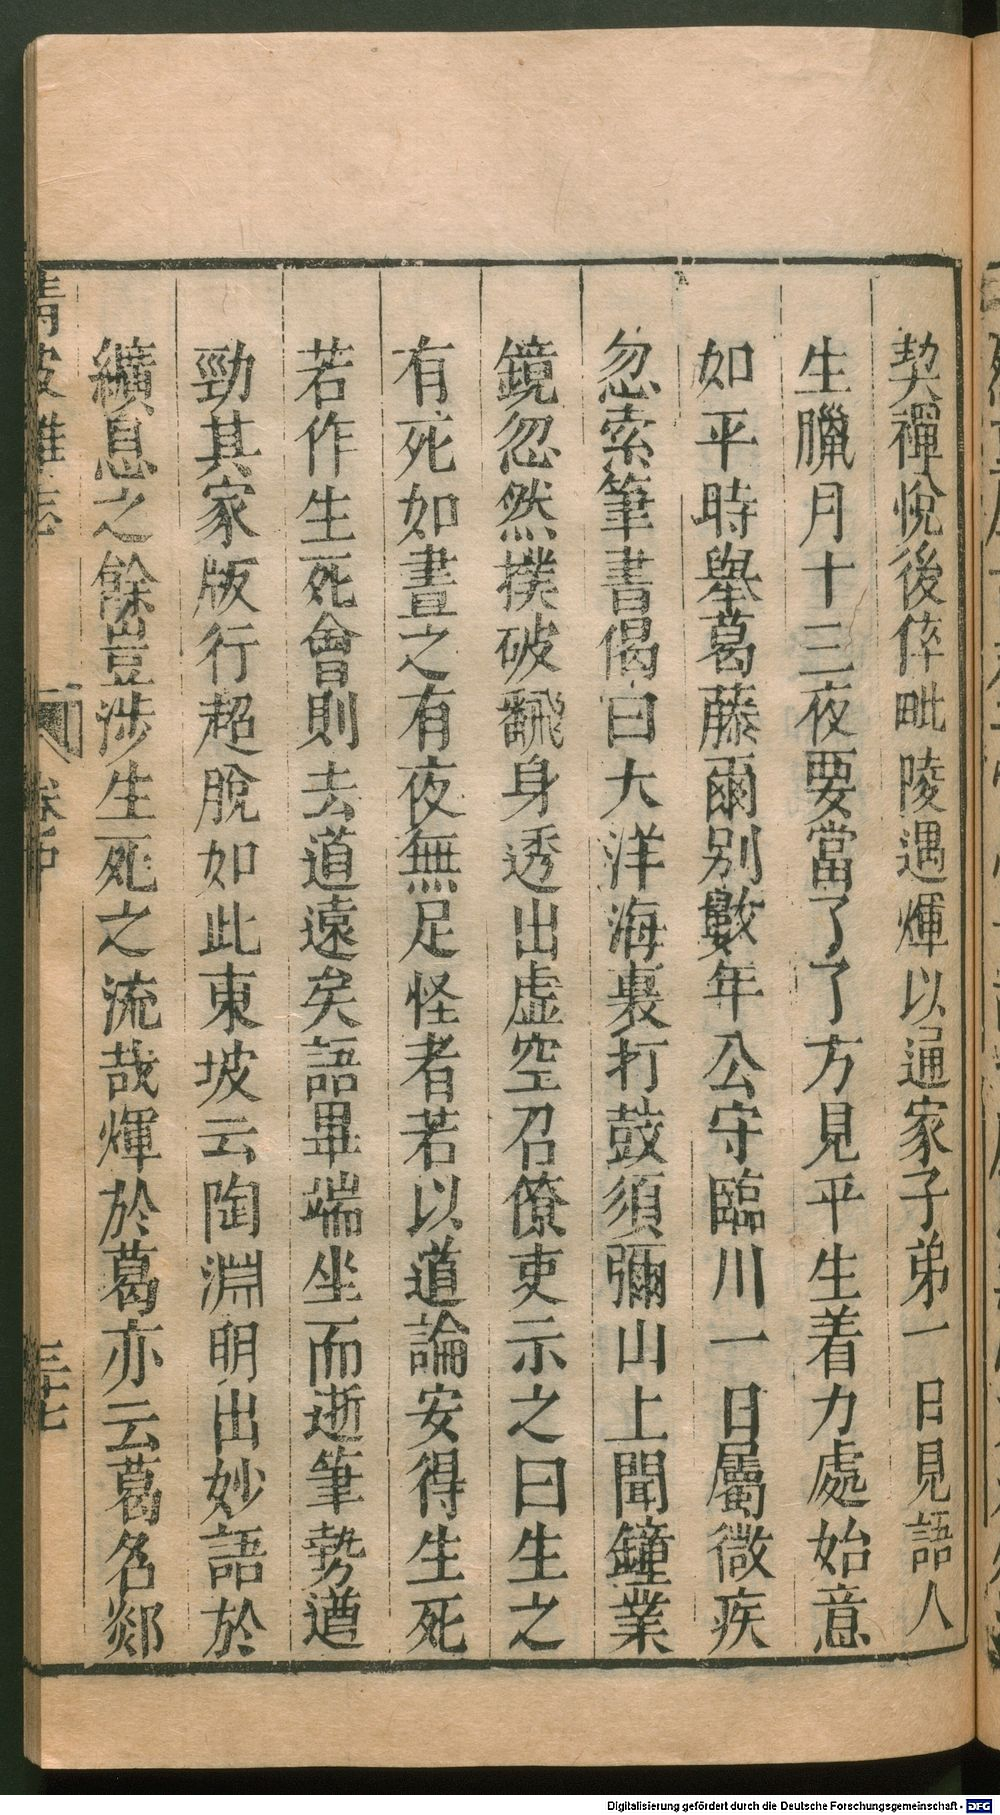 契禪悅後倅毗陵遇煇以通家子弟一日見語人
生臘月十三夜要當了了方見平生着力處始意
如平時舉葛藤爾别數年公守臨川一日屬微疾
忽索筆書偈曰大洋海裏打鼓須彌山上聞鐘業
鏡忽然撲破飜身透出虛空召僚吏示之曰生之
有死如晝之有夜無足怪者若以道論安得生死
若作生死會則去道遠矣語畢端坐而逝筆勢遒
勁其家版行超脫如此東坡云陶淵明出妙語於
纊息之餘豈涉生死之流哉煇於葛亦云葛名郯
清波雜志
卷中
三七
Digitalisierung gefördert durch die Deutsche Forschungsgemeinschaft - DFG